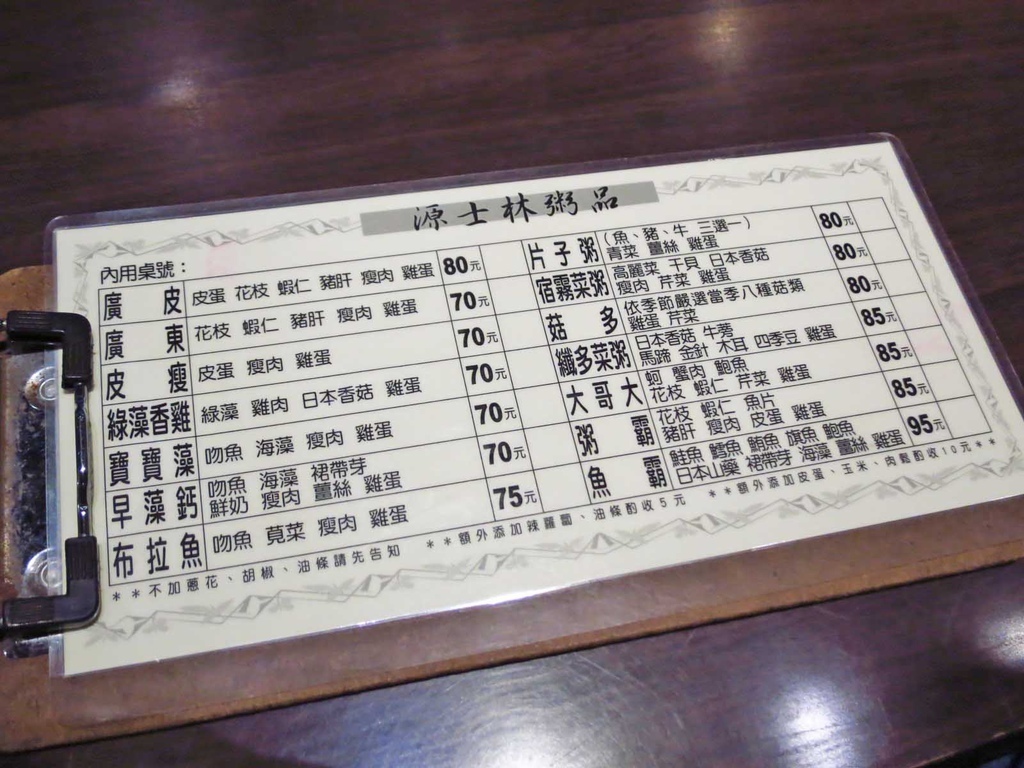 源士林粥品
內用桌號：
廣皮 皮蛋 花枝 蝦仁 豬肝 瘦肉 雞蛋 80元
廣東 花枝 蝦仁 豬肝 瘦肉 雞蛋 70元
皮瘦 皮蛋 瘦肉 雞蛋 70元
綠藻香雞 綠藻 雞肉 日本香菇 雞蛋 70元
寶寶藻 吻魚 海藻 瘦肉 雞蛋 70元
早藻鈣 吻魚 海藻 裙帶芽
鮮奶 瘦肉 薑絲 雞蛋 70元
布拉魚 吻魚 莧菜 瘦肉 雞蛋 75元
片子粥 (魚、豬、牛 三選一)
青菜 薑絲 雞蛋 80元
宿霧菜粥 高麗菜 干貝 日本香菇
瘦肉 芹菜 雞蛋 80元
菇多 依季節嚴選當季八種菇類
雞蛋 芹菜 80元
纖多菜粥 日本香菇 牛蒡
馬蹄 金針 木耳 四季豆 雞蛋 85元
大哥大 蚵 蟹肉 鮑魚
花枝 蝦仁 芹菜 雞蛋 85元
粥霸 花枝 蝦仁 魚片
豬肝 瘦肉 皮蛋 雞蛋 85元
魚霸 鮭魚 鱈魚 鯛魚 旗魚 鮑魚
日本山藥 裙帶芽 海藻 薑絲 雞蛋 95元
**不加蔥花、胡椒、油條請先告知 **額外添加辣蘿蔔、油條酌收5元 **額外添加皮蛋、玉米、肉鬆酌收10元**